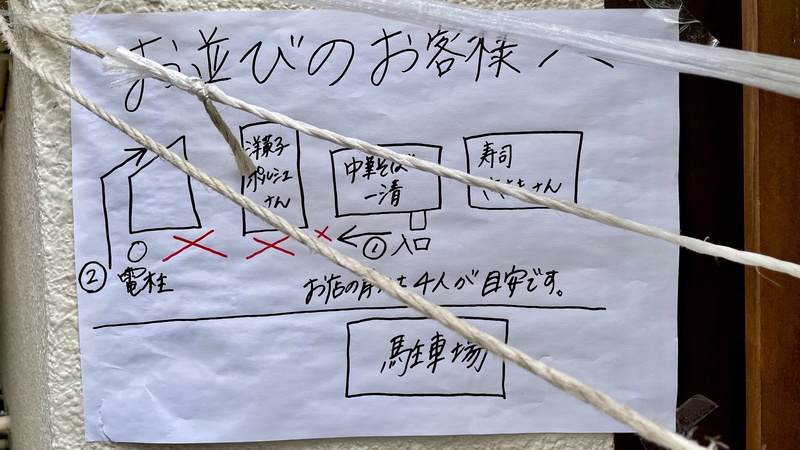 お並びのお客様へ
洋菓子
ポルシェ
さん
中華そば
一清
寿司
さん
① 入口
② 電柱
お店の前は4人が目安です。
駐車場